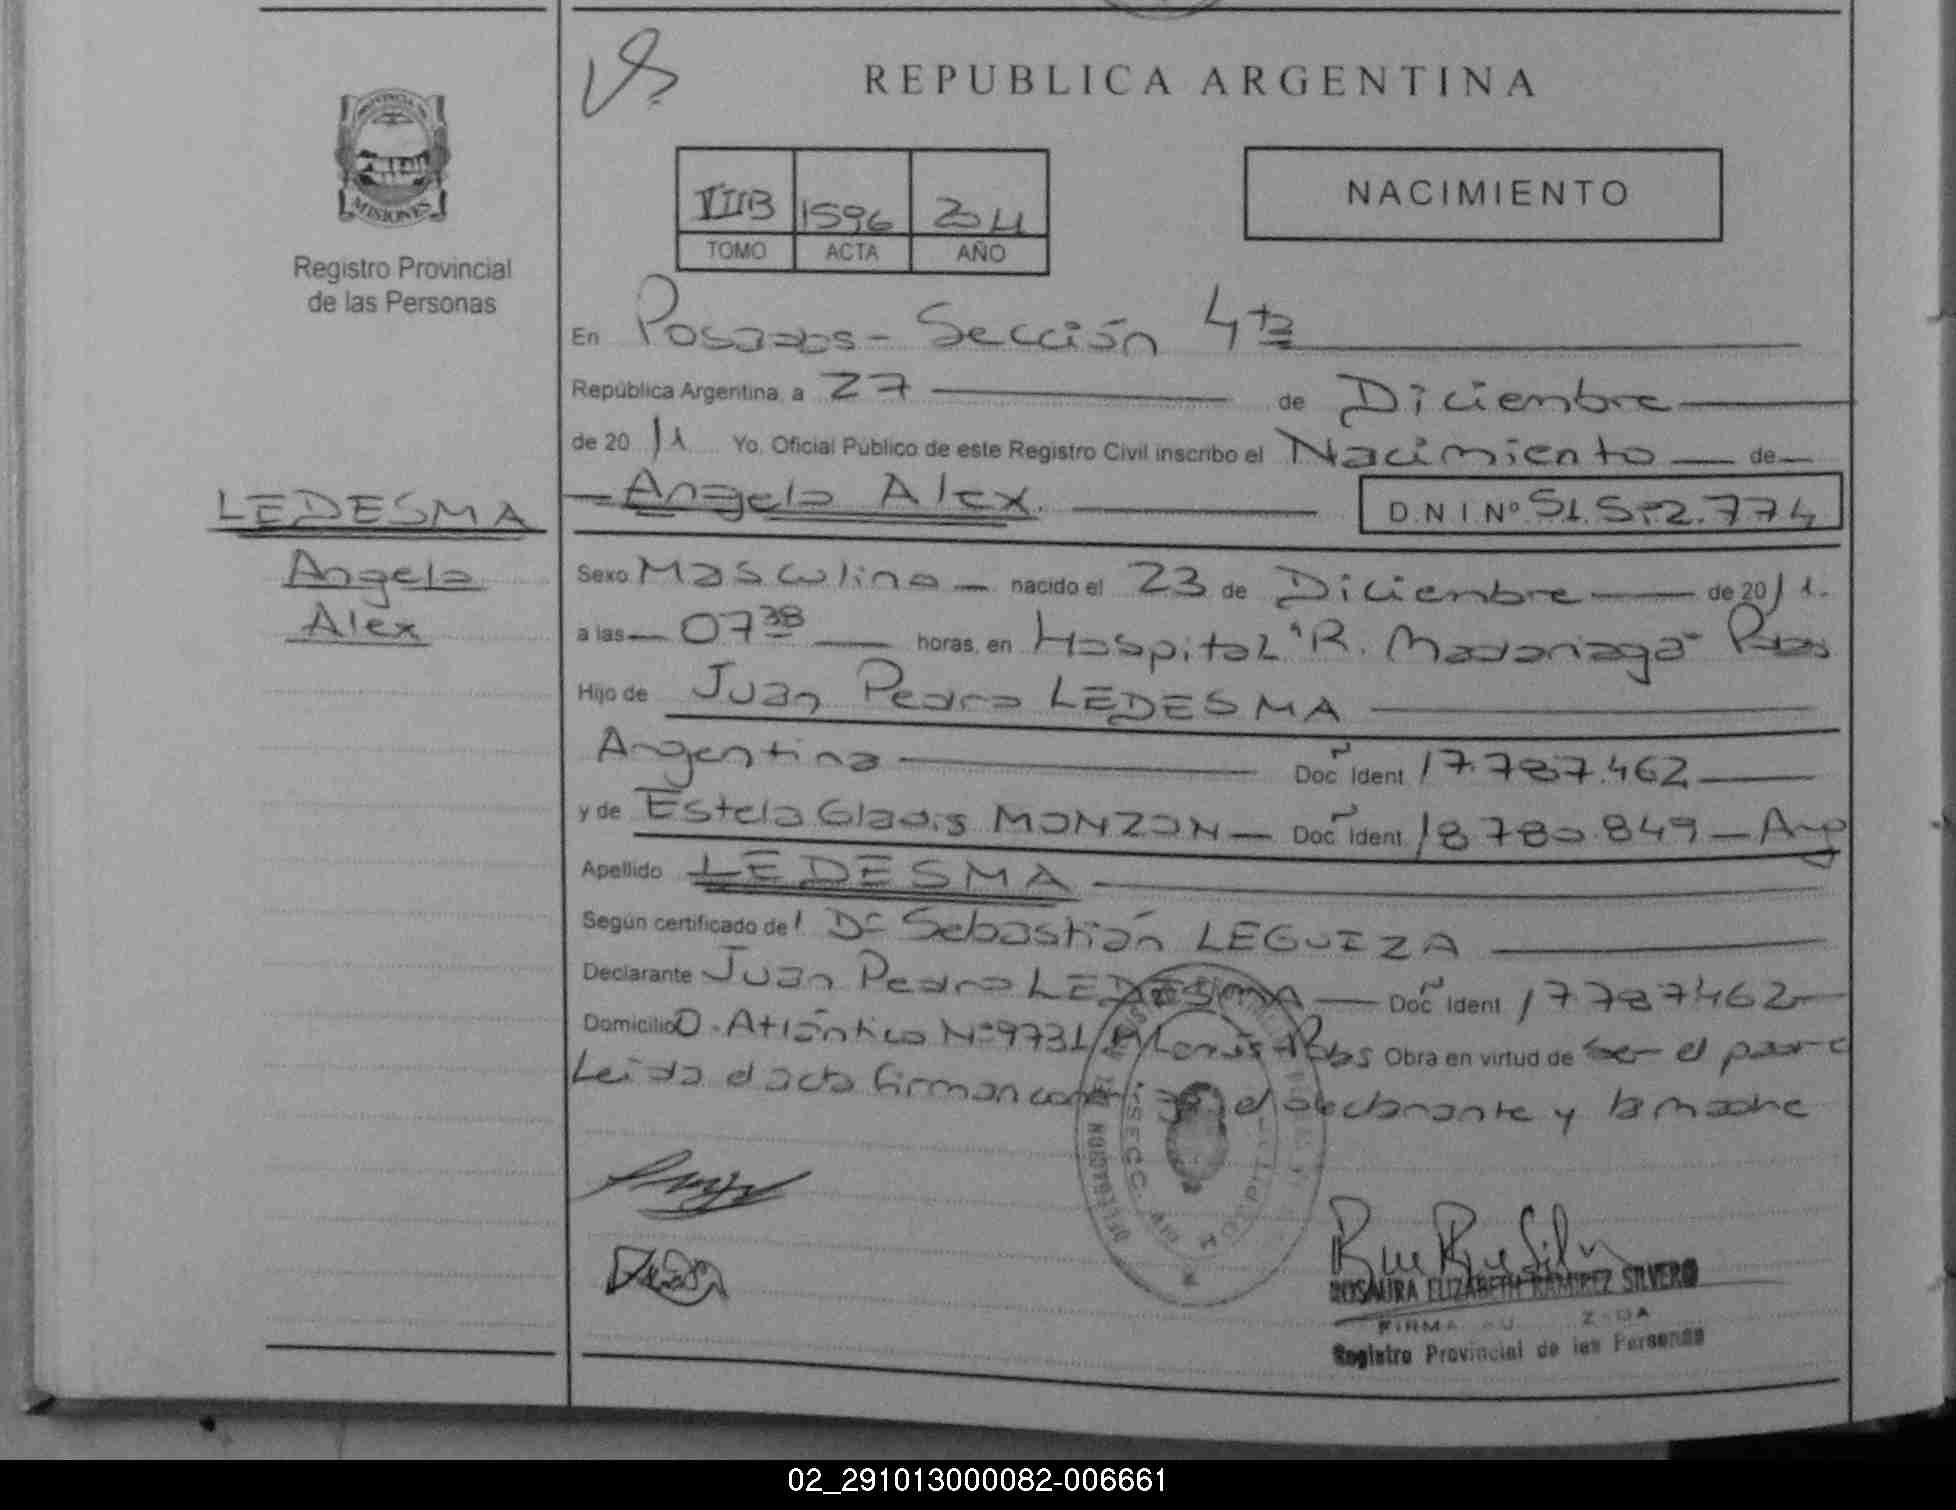 REPUBLICA ARGENTINA
PROVINCIA DE
MISIONES
Registro Provincial
de las Personas
VIIB 1596 2011
TOMO ACTA AÑO
NACIMIENTO
En Posadas - Sección 4ta
República Argentina, a 27 de Diciembre
de 2011 Yo, Oficial Público de este Registro Civil inscribo el Nacimiento de
Angelo Alex. D.N.I. Nº 51.572.774
LEDESMA
Angelo
Alex
Sexo Masculino nacido el 23 de Diciembre de 2011.
a las 07 38 horas, en Hospital "R. Madariaga" Pdas
Hijo de Juan Pedro LEDESMA
Argentina Doc Ident 17.787.462
y de Estela Gladis MONZON Doc Ident 18.780.849 - Arg
Apellido LEDESMA
Según certificado del Dr Sebastián LEGUIZA
Declarante Juan Pedro LEDESMA Doc Ident 17787462
Domicilio O. Atlántico Nº 9731 Pdas Obra en virtud de ser el padre
Leida el acta firman conmigo el declarante y la madre
DELEGACION
SECC. 4ta
ROSAURA ELIZABETH RAMIREZ SILVERO
FIRMA
Registro Provincial de las Personas
02_291013000082-006661